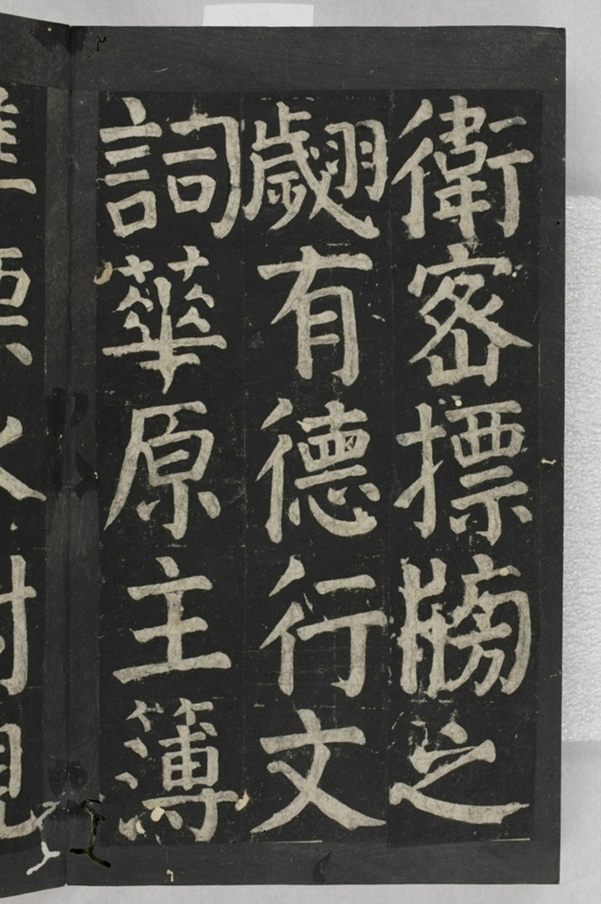 衛密摽牓之
翽有德行文
詞華原主簿